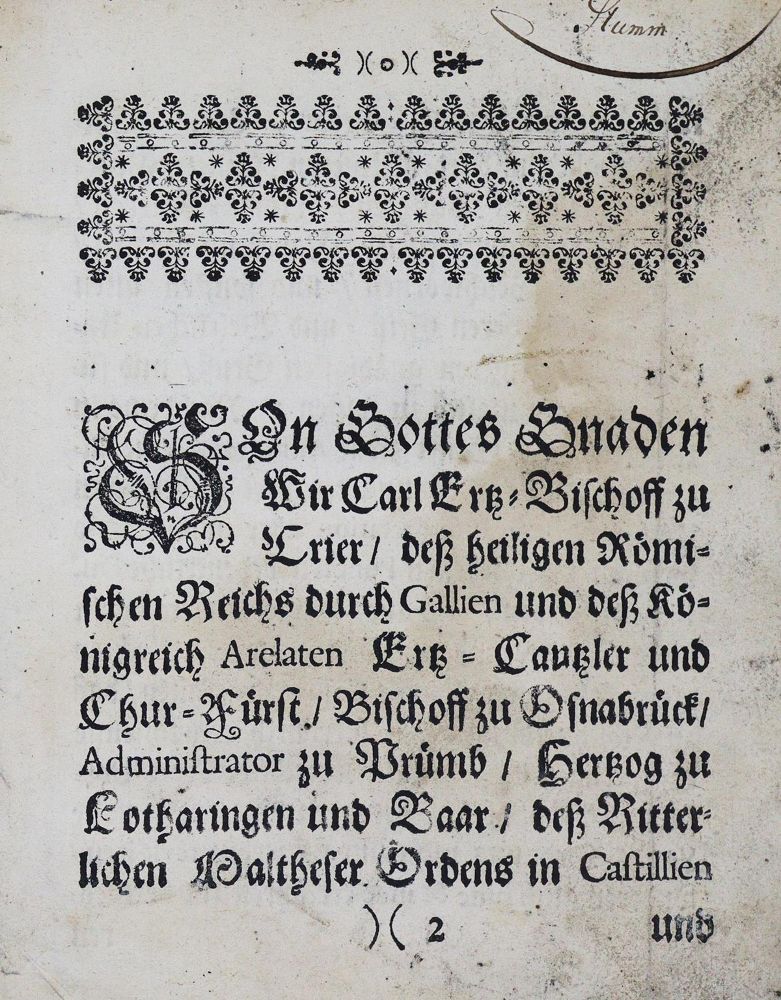 Stumm
)( o )(
VOn Gottes Gnaden
Wir Carl Ertz-Bischoff zu
Trier / deß heiligen Römi-
schen Reichs durch Gallien und deß Kö-
nigreich Arelaten Ertz-Cantzler und
Chur-Fürst / Bischoff zu Osnabrück /
Administrator zu Prümb / Hertzog zu
Lotharingen und Baar / deß Ritter-
lichen Maltheser Ordens in Castillien
)( 2 und